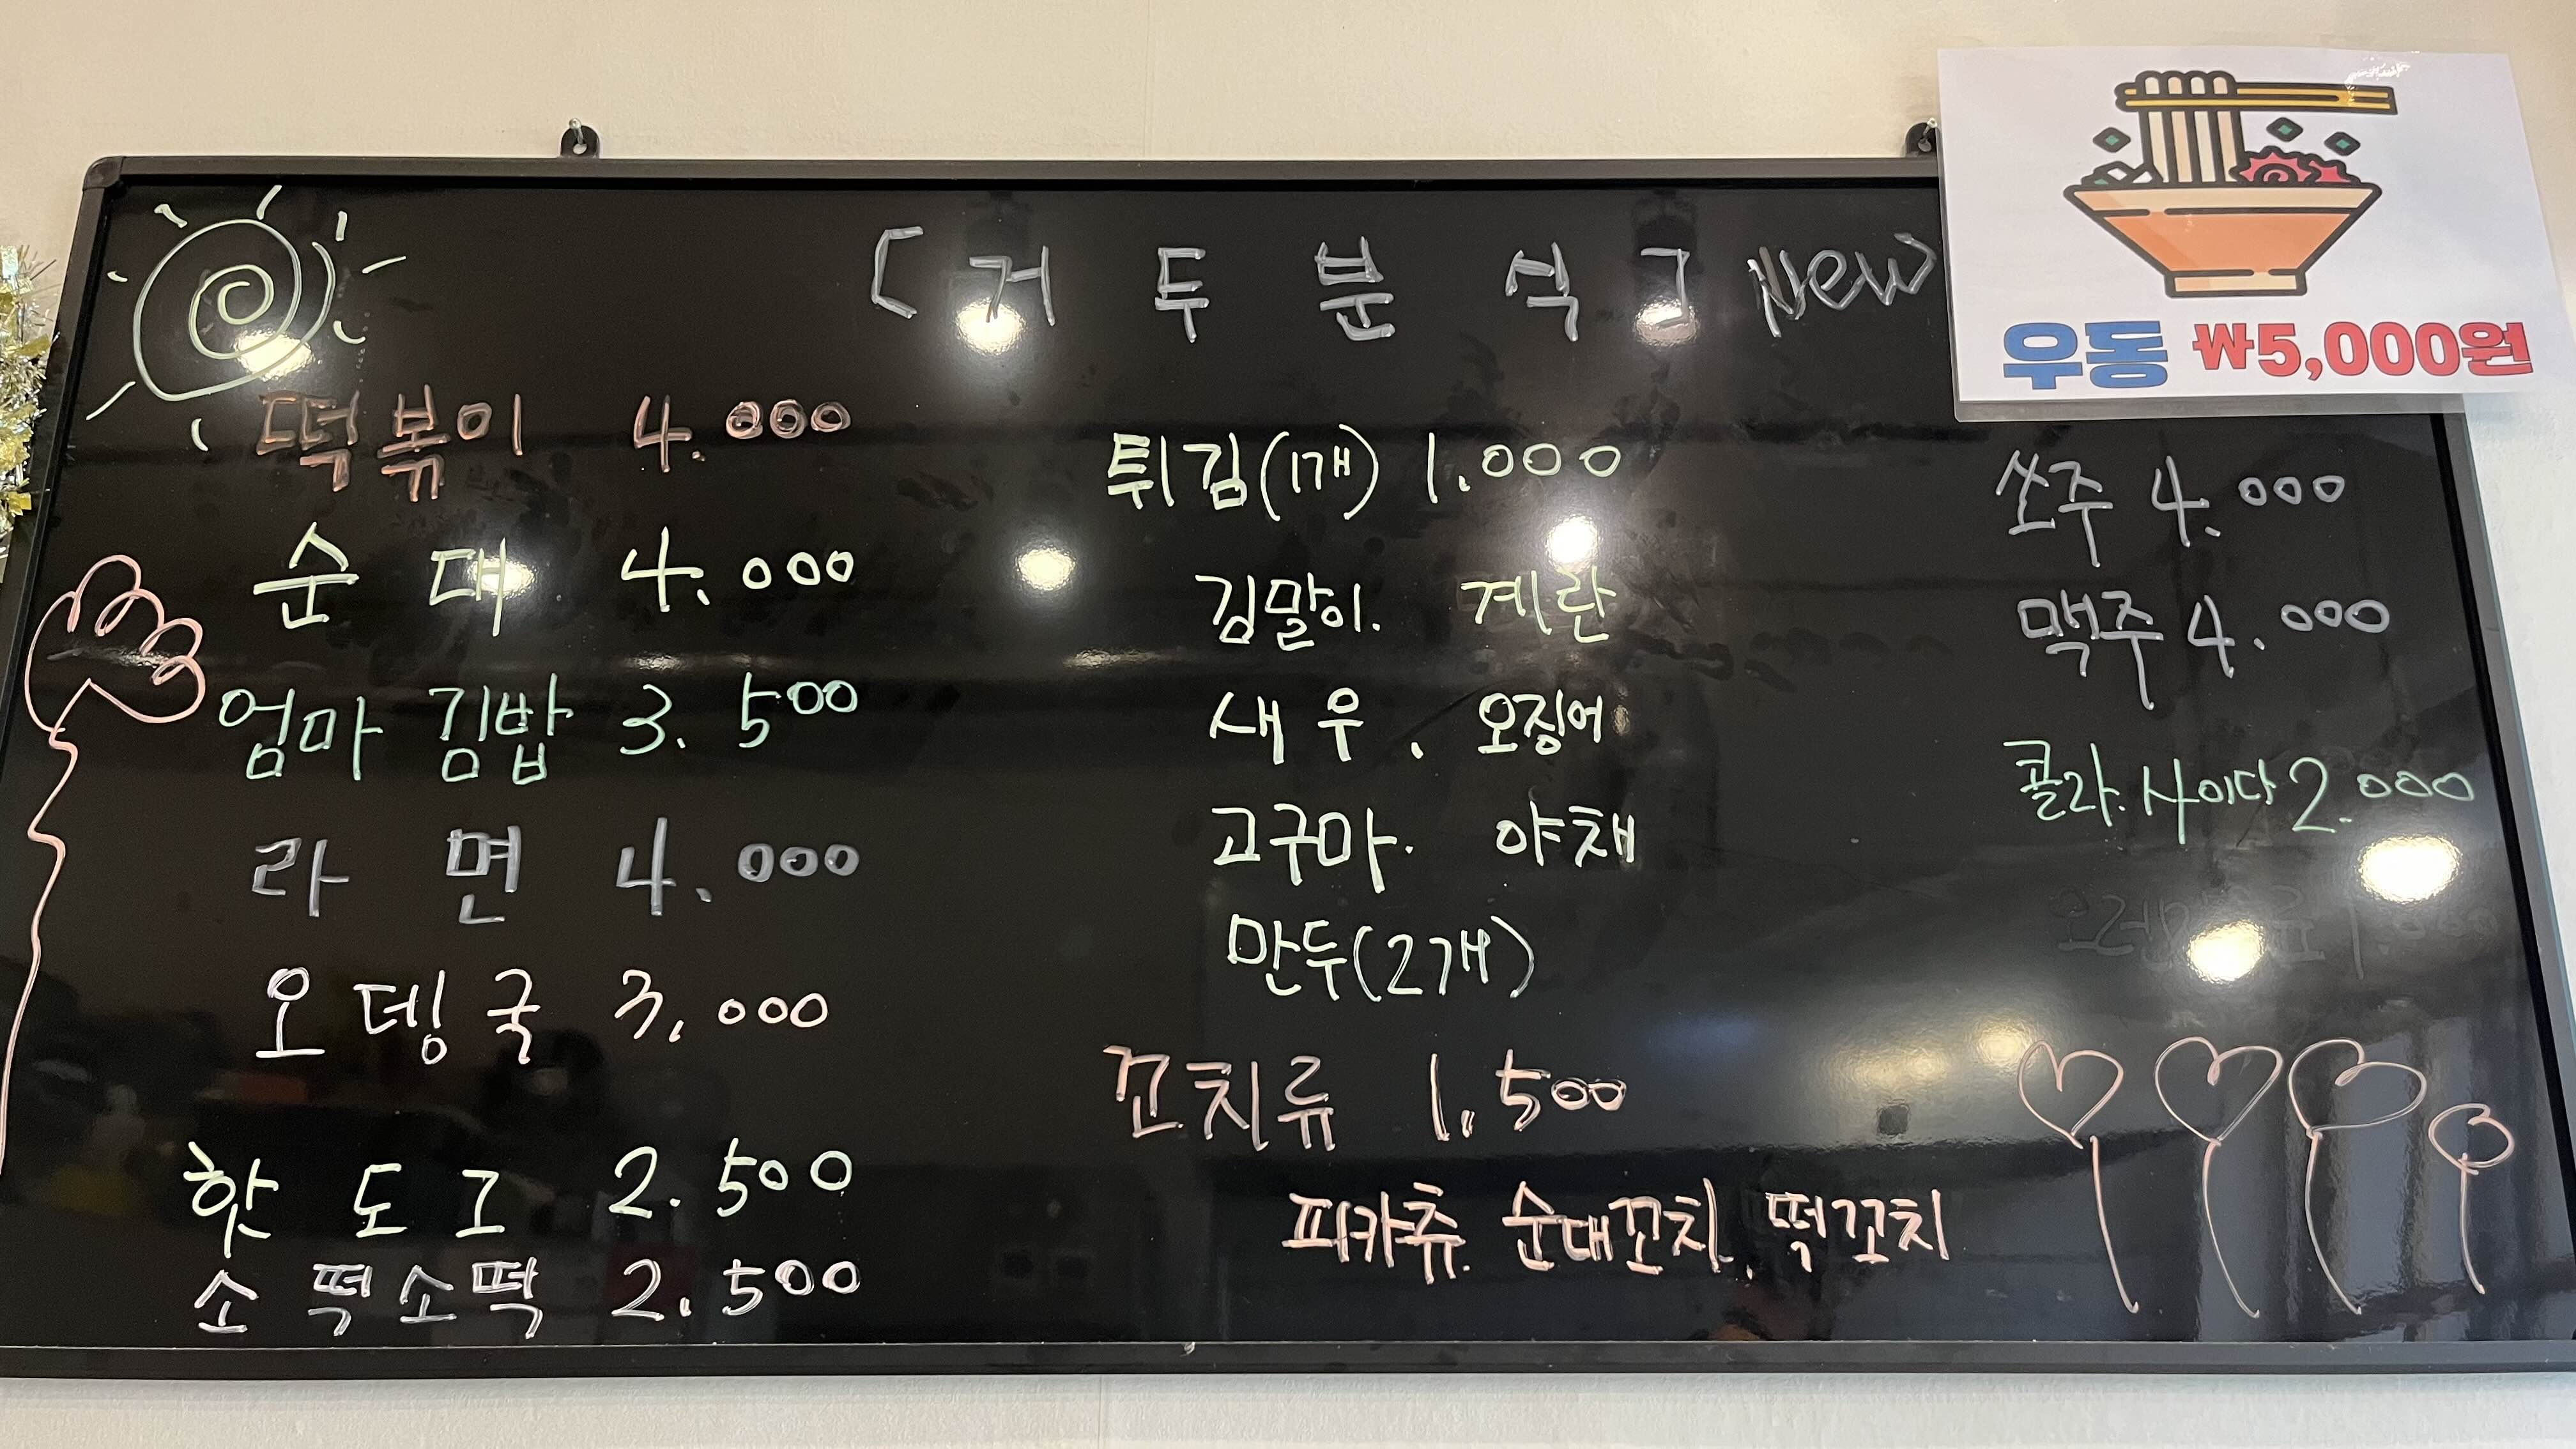 [거두분식] New
우동 ₩5,000원
떡볶이 4.000
순대 4.000
엄마김밥 3.500
라면 4.000
오뎅국 3.000
핫도그 2.500
소떡소떡 2.500
튀김(1개) 1.000
김말이. 계란
새우. 오징어
고구마. 야채
만두(2개)
꼬치류 1.500
피카츄. 순대꼬치, 떡꼬치
쏘주 4.000
맥주 4.000
콜라.사이다 2.000